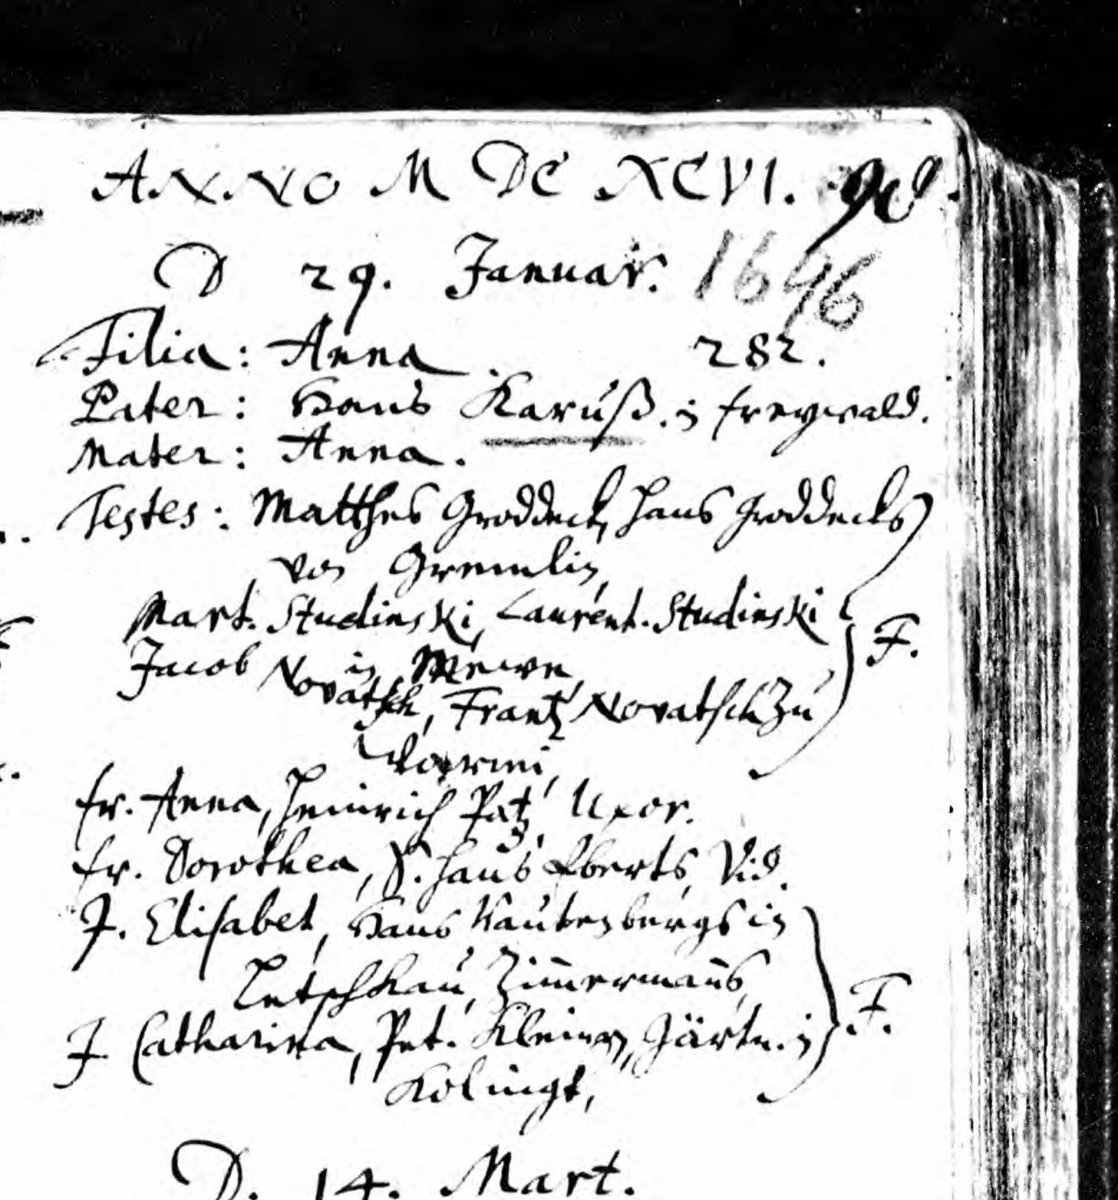 ANNO M DC XCVI. 90.
D 29. Januar. 1696
Filia: Anna. 282.
Pater: Hans Karuß. in freywald.
Mater: Anna.
Testes: Matthes Groddeck, Hans Groddecks
von Gremlin,
Mart. Studinski, Laurent. Studinski
in Mewe,
Jacob Novatsch, Frantz Novatsch Zu
F.
fr. Anna, Heinrich Patz, Uxor.
fr. Dorothea, S. Hans Eberts, Vid.
J. Elisabet, Hans Rautenbergs in
Letschkau, Zim̄erman̄s,
J. Catharina, Pet. Kleinen, Gärtn. in
F.
D. 14. Mart.